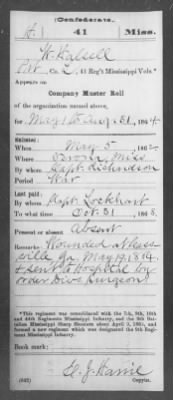 (Confederate.)
H. 41 Miss.
Pvt., Co. L, 41 Reg't Mississippi Vols.*
Appears on
Company Muster Roll
of the organization named above,
for May 1 to Aug 31, 1864.
Enlisted:
When May 5, 1862.
Where Miss
By whom Capt. Richardson
Period War
Last paid:
By whom Capt. Lockhart
To what time Oct. 31, 1863.
Present or absent Absent
Remarks: Wounded at
ville Ga. May 19, 1864
& sent to Hospital by
order Surgeon
*This regiment was consolidated with the 7th, 9th, 10th
and 44th Regiments Mississippi Infantry, and the 9th Bat-
talion Mississippi Sharp Shooters about April 9, 1865, and
formed a new regiment which was designated the 9th Regi-
ment Mississippi Infantry.
Book mark:
(642) Copyist.